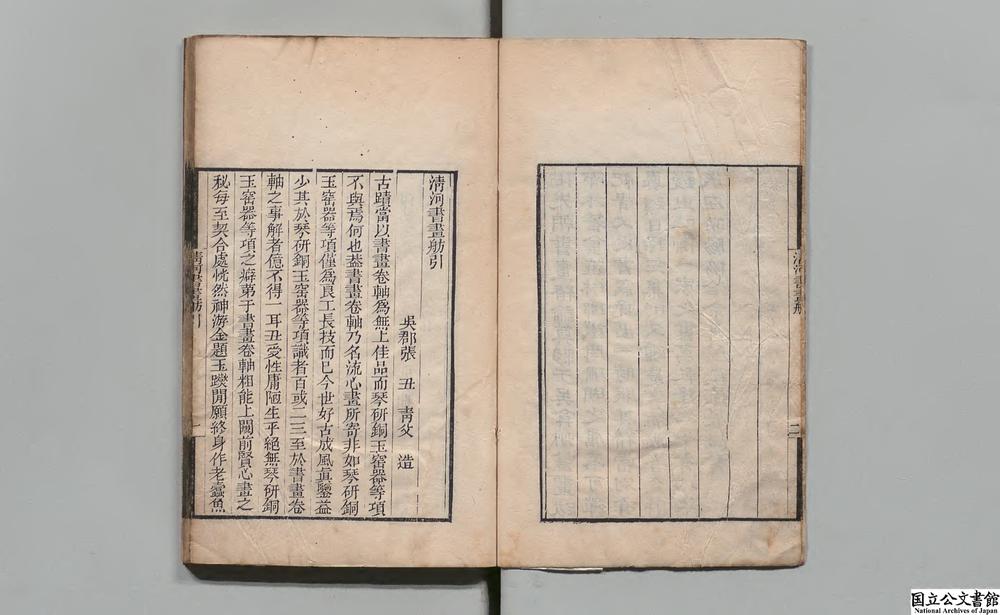 清河書畫舫
二
清河書畫舫引
吳郡張 丑 青父 造
古蹟當以書畫卷軸爲無上佳品而琴研銅玉窑器等項
不與焉何也葢書畫卷軸乃名流心畫所寄非如琴研銅
玉窑器等項僅爲良工長技而已今世好古成風眞鑒益
少其於琴研銅玉窑器等項識者百或二三至於書畫卷
軸之事解者億不得一耳丑受性庸陋生乎絕無琴研銅
玉窑器等項之癖第于書畫卷軸粗能上闚前賢心畫之
秘每至契合處恍然神游金題玉躞閒願終身作老蠹魚
清河書畫舫引
一
国立公文書館
National Archives of Japan